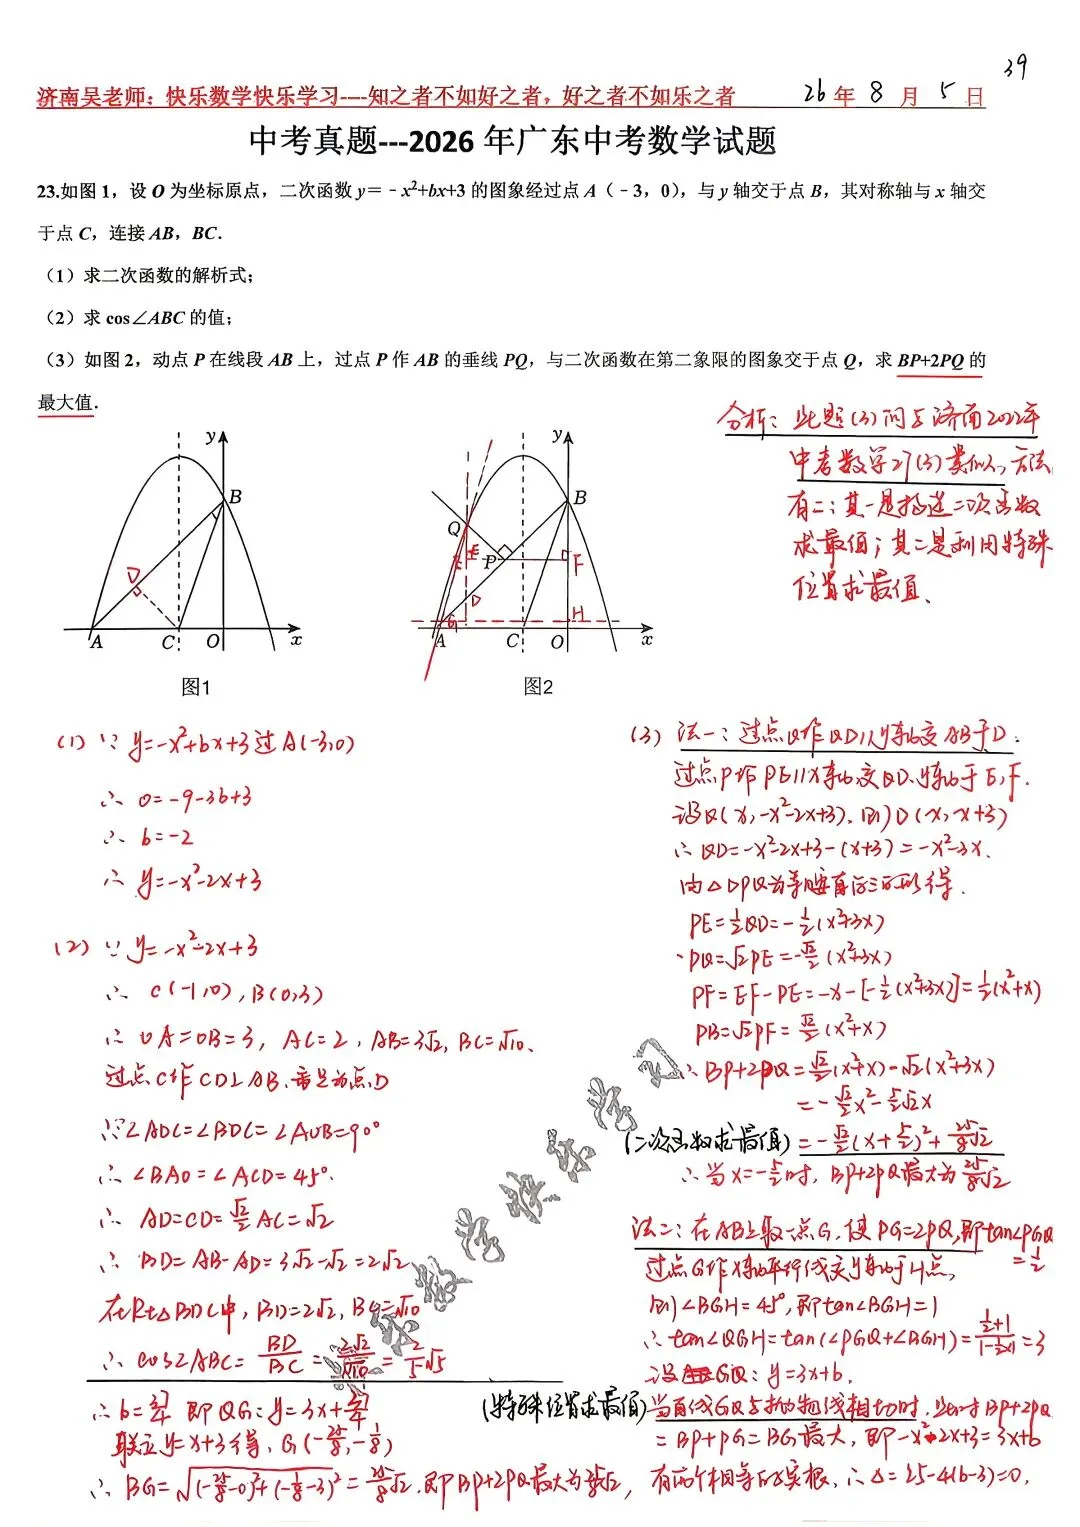 39
济南吴老师：快乐数学快乐学习----知之者不如好之者，好之者不如乐之者 26年 8 月 5 日
中考真题---2026 年广东中考数学试题
23.如图 1，设 O 为坐标原点，二次函数 y＝﹣x²+bx+3 的图象经过点 A（﹣3，0），与 y 轴交于点 B，其对称轴与 x 轴交
于点 C，连接 AB，BC．
（1）求二次函数的解析式；
（2）求 cos∠ABC 的值；
（3）如图 2，动点 P 在线段 AB 上，过点 P 作 AB 的垂线 PQ，与二次函数在第二象限的图象交于点 Q，求 BP+2PQ 的
最大值．
分析：此题(3)问与济南2022年
中考数学27(3)类似，方法
有二：其一是构造二次函数
求最值；其二是利用特殊
位置求最值．
y
B
D
A
C
O
x
图1
y
B
Q
E
P
F
D
G
H
A
C
O
x
图2
(1) ∵ y=-x²+bx+3过A(-3,0)
∴ 0=-9-3b+3
∴ b=-2
∴ y=-x²-2x+3
(2) ∵ y=-x²-2x+3
∴ C(-1,0),B(0,3)
∴ OA=OB=3, AC=2, AB=3√2, BC=√10.
过点C作CD⊥AB.垂足为点D
∵∠ADC=∠BDC=∠AOB=90°
∴ ∠BAO=∠ACD=45°.
∴ AD=CD=√2/2 AC=√2
∴ BD=AB-AD=3√2-√2=2√2
在Rt△BDC中, BD=2√2, BC=√10
∴ cos∠ABC=BD/BC=2√2/√10=2/5√5
(3) 法一：过点Q作QD∥y轴交AB于D.
过点P作PE∥x轴交QD、y轴于E,F.
设Q(x,-x²-2x+3),则D(x,x+3)
∴ QD=-x²-2x+3-(x+3)=-x²-3x.
由△DPQ为等腰直角三角形得.
PE=1/2QD=-1/2(x²+3x)
PQ=√2PE=-√2/2(x²+3x)
PF=EF-PE=-x-[-1/2(x²+3x)]=1/2(x²+x)
PB=√2PF=√2/2(x²+x)
∴ BP+2PQ=√2/2(x²+x)-√2(x²+3x)
=-√2/2x²-5/2√2x
(二次函数求最值)=-√2/2(x+5/2)²+25/8√2
∴ 当x=-5/2时, BP+2PQ最大为25/8√2
法二：在AB上取一点G,使PG=2PQ,即tan∠PGQ=1/2
过点G作x轴平行线交y轴于H点,
则∠BGH=45°,即tan∠BGH=1
∴ tan∠QGH=tan(∠PGQ+∠BGH)=(1/2+1)/(1-1/2×1)=3
设GQ: y=3x+b,
(特殊位置求最值)当直线GQ与抛物线相切时,此时BP+2PQ
=BP+PG=BG最大, 即-x²-2x+3=3x+b
有两个相等的实根, ∴ Δ=25-4(b-3)=0,
∴ b=37/4 即QG: y=3x+37/4
联立y=x+3得, G(-25/8,-1/8)
∴ BG=√((-25/8-0)²+(-1/8-3)²)=25/8√2. 即BP+2PQ最大为25/8√2,
快乐数学快乐学习